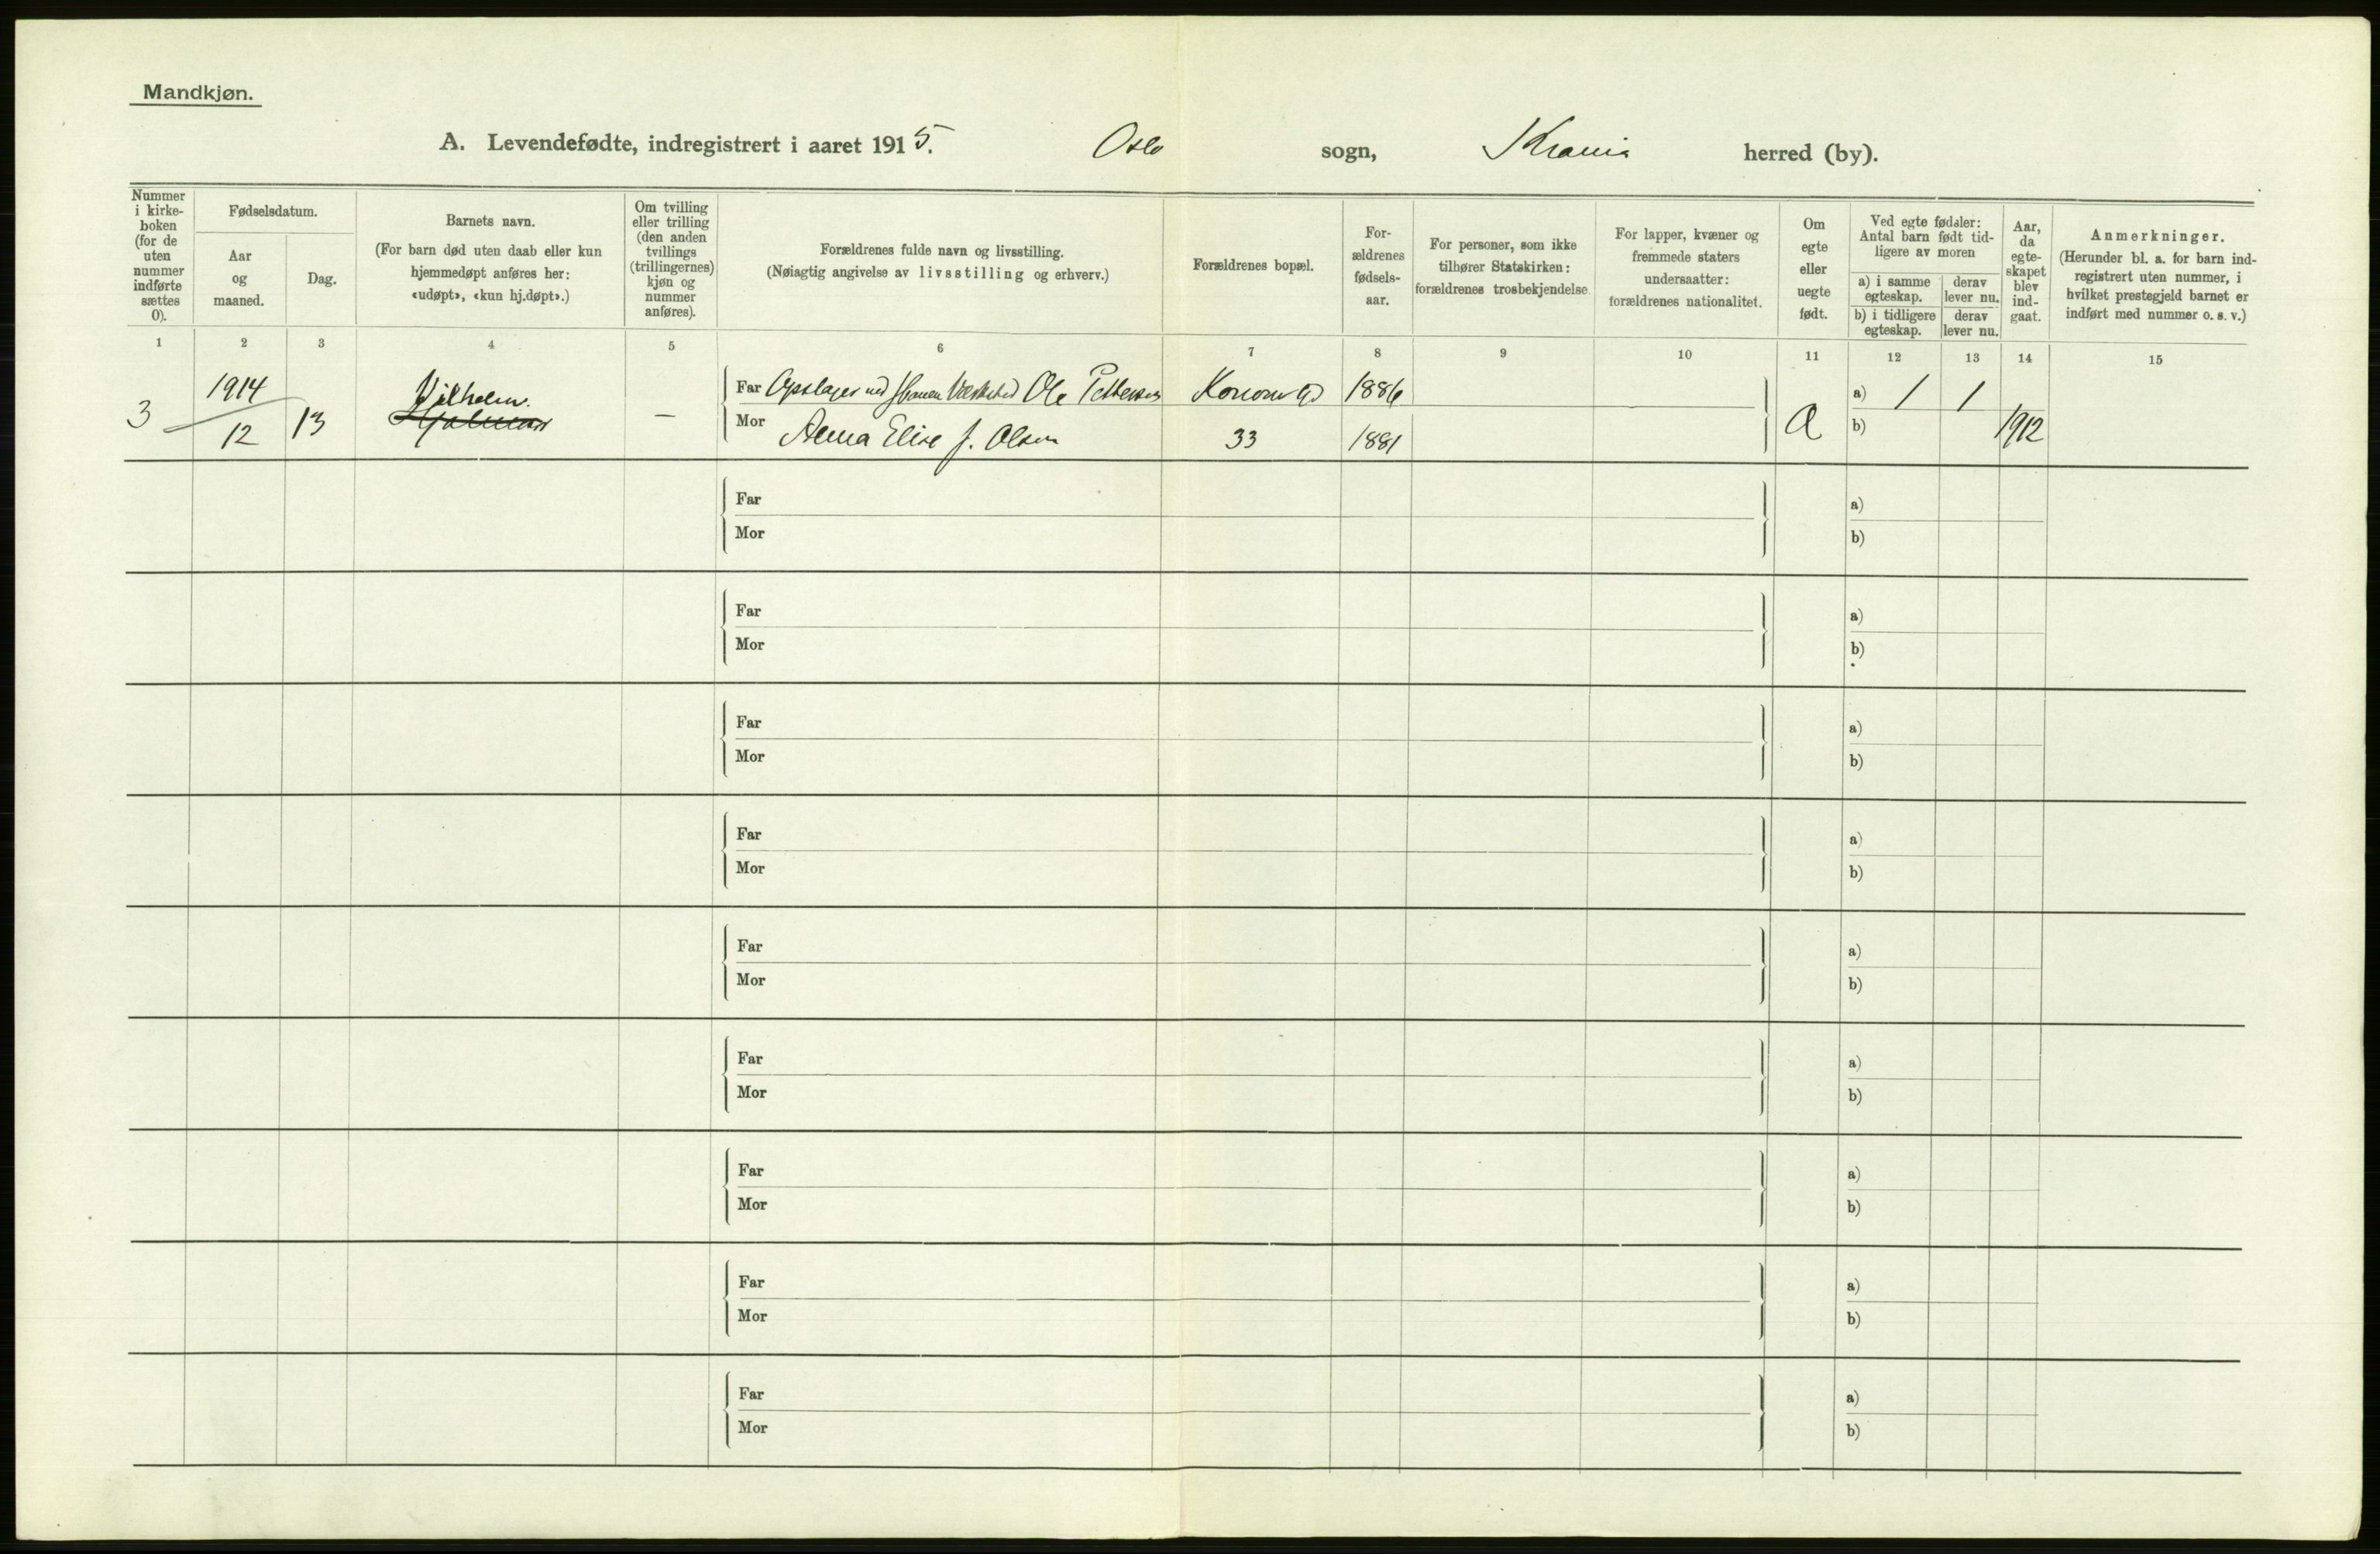 Mandkjøn.
A. Levendefødte, indregistrert i aaret 1915. Oslo sogn, Krania herred (by).
Nummer i kirke-boken (for de uten nummer indførte sættes 0).
Fødselsdatum.
Aar og maaned.
Dag.
Barnets navn.
(For barn død uten daab eller kun hjemmedøpt anføres her: «udøpt», «kun hj.døpt».)
Om tvilling eller trilling (den anden tvillings (trillingernes) kjøn og nummer anføres).
Forældrenes fulde navn og livsstilling.
(Nøiagtig angivelse av livsstilling og erhverv.)
Forældrenes bopæl.
For-ældrenes fødsels-aar.
For personer, som ikke tilhører Statskirken: forældrenes trosbekjendelse.
For lapper, kvæner og fremmede staters undersaatter: forældrenes nationalitet.
Om egte eller uegte født.
Ved egte fødsler: Antal barn født tid-ligere av moren
a) i samme egteskap.
derav lever nu.
b) i tidligere egteskap.
derav lever nu.
Aar, da egte-skapet blev ind-gaat.
Anmerkninger.
(Herunder bl. a. for barn ind-registrert uten nummer, i hvilket prestegjeld barnet er indført med nummer o. s. v.)
1 2 3 4 5 6 7 8 9 10 11 12 13 14 15
3 1914 12 13 Vilhelm. Hjalmar —
Far Ole Pettersen 1886 a) 1 1
Mor Anna Elise f. Olsen 33 1881 b) 1912
Far a)
Mor b)
Far a)
Mor b)
Far a)
Mor b)
Far a)
Mor b)
Far a)
Mor b)
Far a)
Mor b)
Far a)
Mor b)
Far a)
Mor b)
Far a)
Mor b)